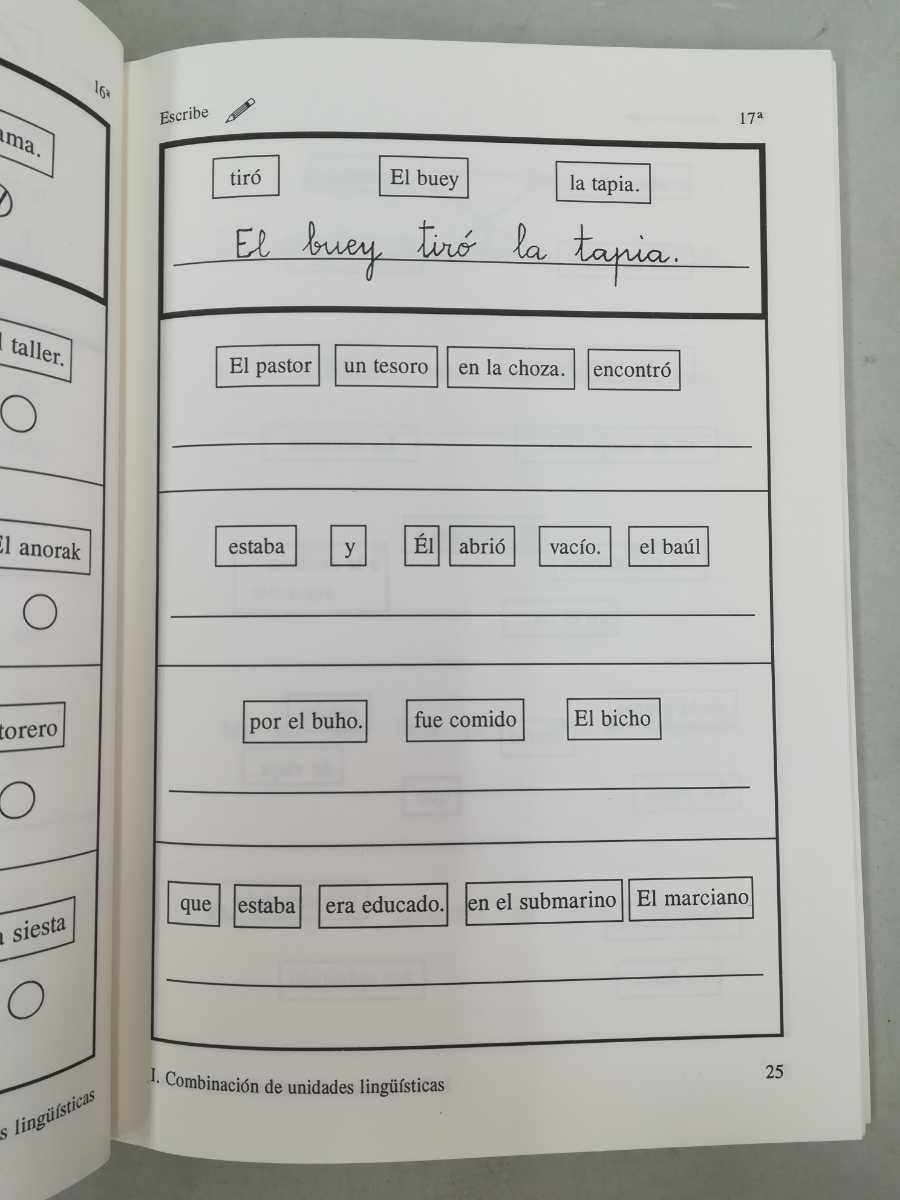 16ª
ama.
taller.
El anorak
torero
siesta
lingüísticas
Escribe
17ª
tiró El buey la tapia.
El buey tiró la tapia.
El pastor un tesoro en la choza. encontró
estaba y Él abrió vacío. el baúl
por el buho. fue comido El bicho
que estaba era educado. en el submarino El marciano
I. Combinación de unidades lingüísticas
25